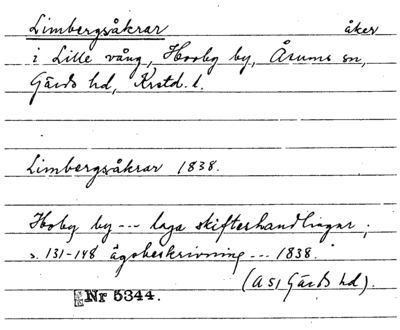 Limbergsåkrar åker
i Lille vång, Hovby by, Årums sn,
Gärds hd, Krstd. l.
Limbergsåkrar 1838.
Hoby by --- laga skifteshandlingar;
s. 131-148 ägobeskrivning --- 1838.
(ASI Gärds hd).
Nr 5344.